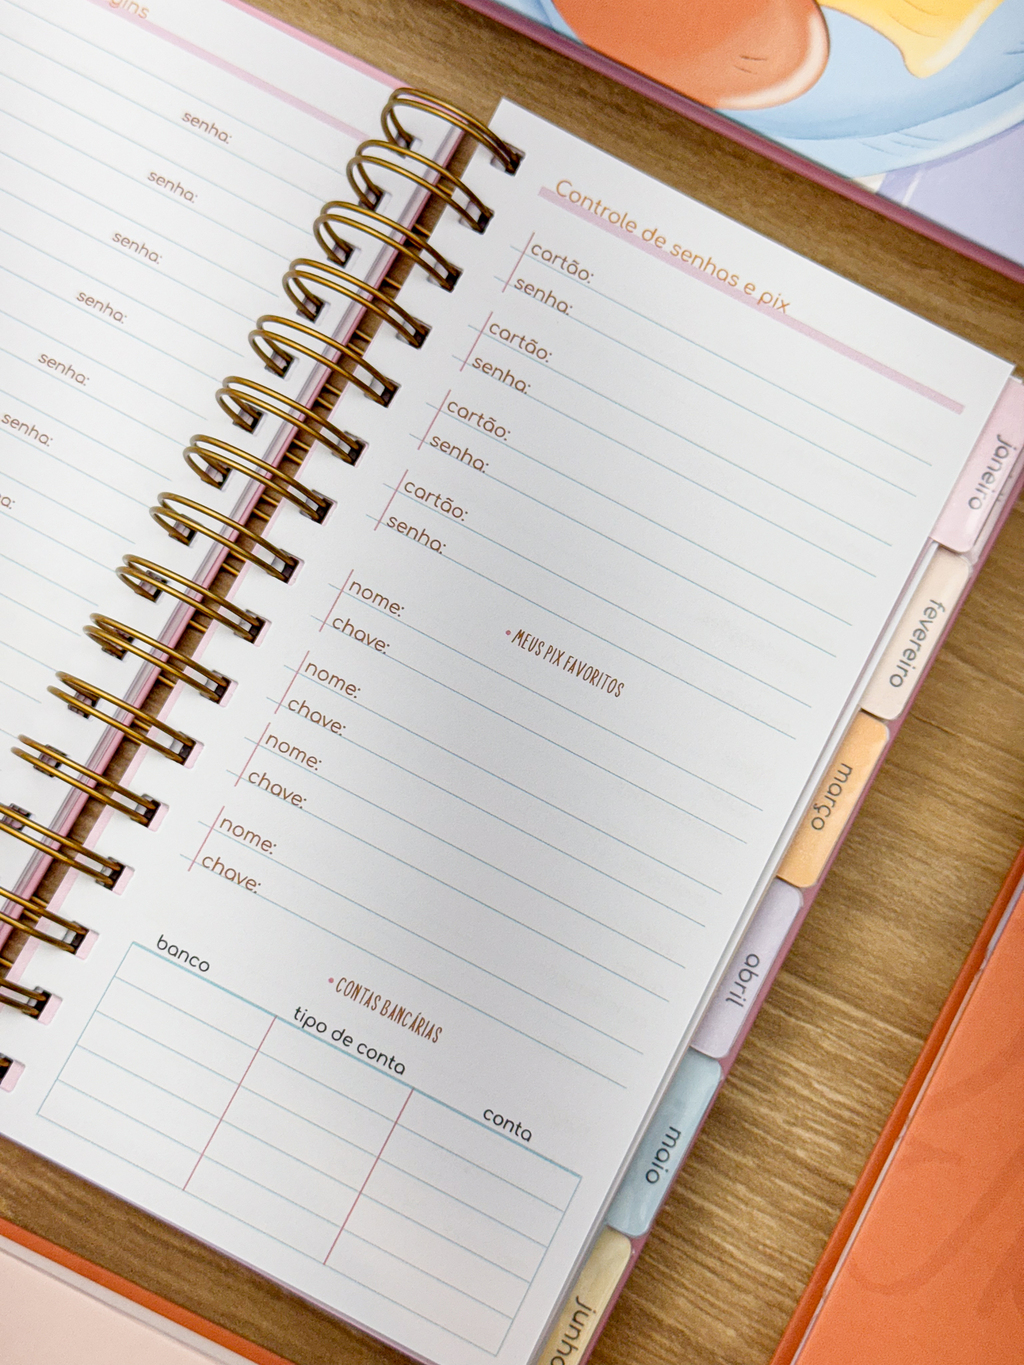 senha:
senha:
senha:
senha:
senha:
senha:
Controle de senhas e pix
cartão:
senha:
cartão:
senha:
cartão:
senha:
cartão:
senha:
• MEUS PIX FAVORITOS
nome:
chave:
nome:
chave:
nome:
chave:
nome:
chave:
• CONTAS BANCÁRIAS
banco
tipo de conta
conta
janeiro
fevereiro
março
abril
maio
junho